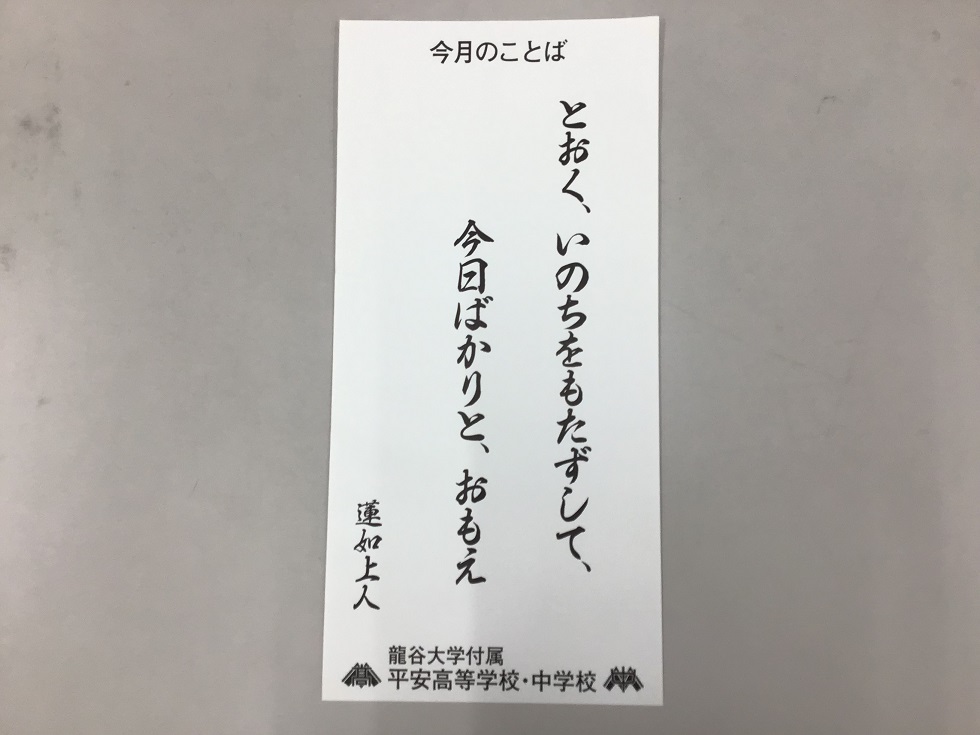 今月のことば
とおく、いのちをもたずして、
今日ばかりと、おもえ
蓮如上人
龍谷大学付属
平安高等学校・中学校